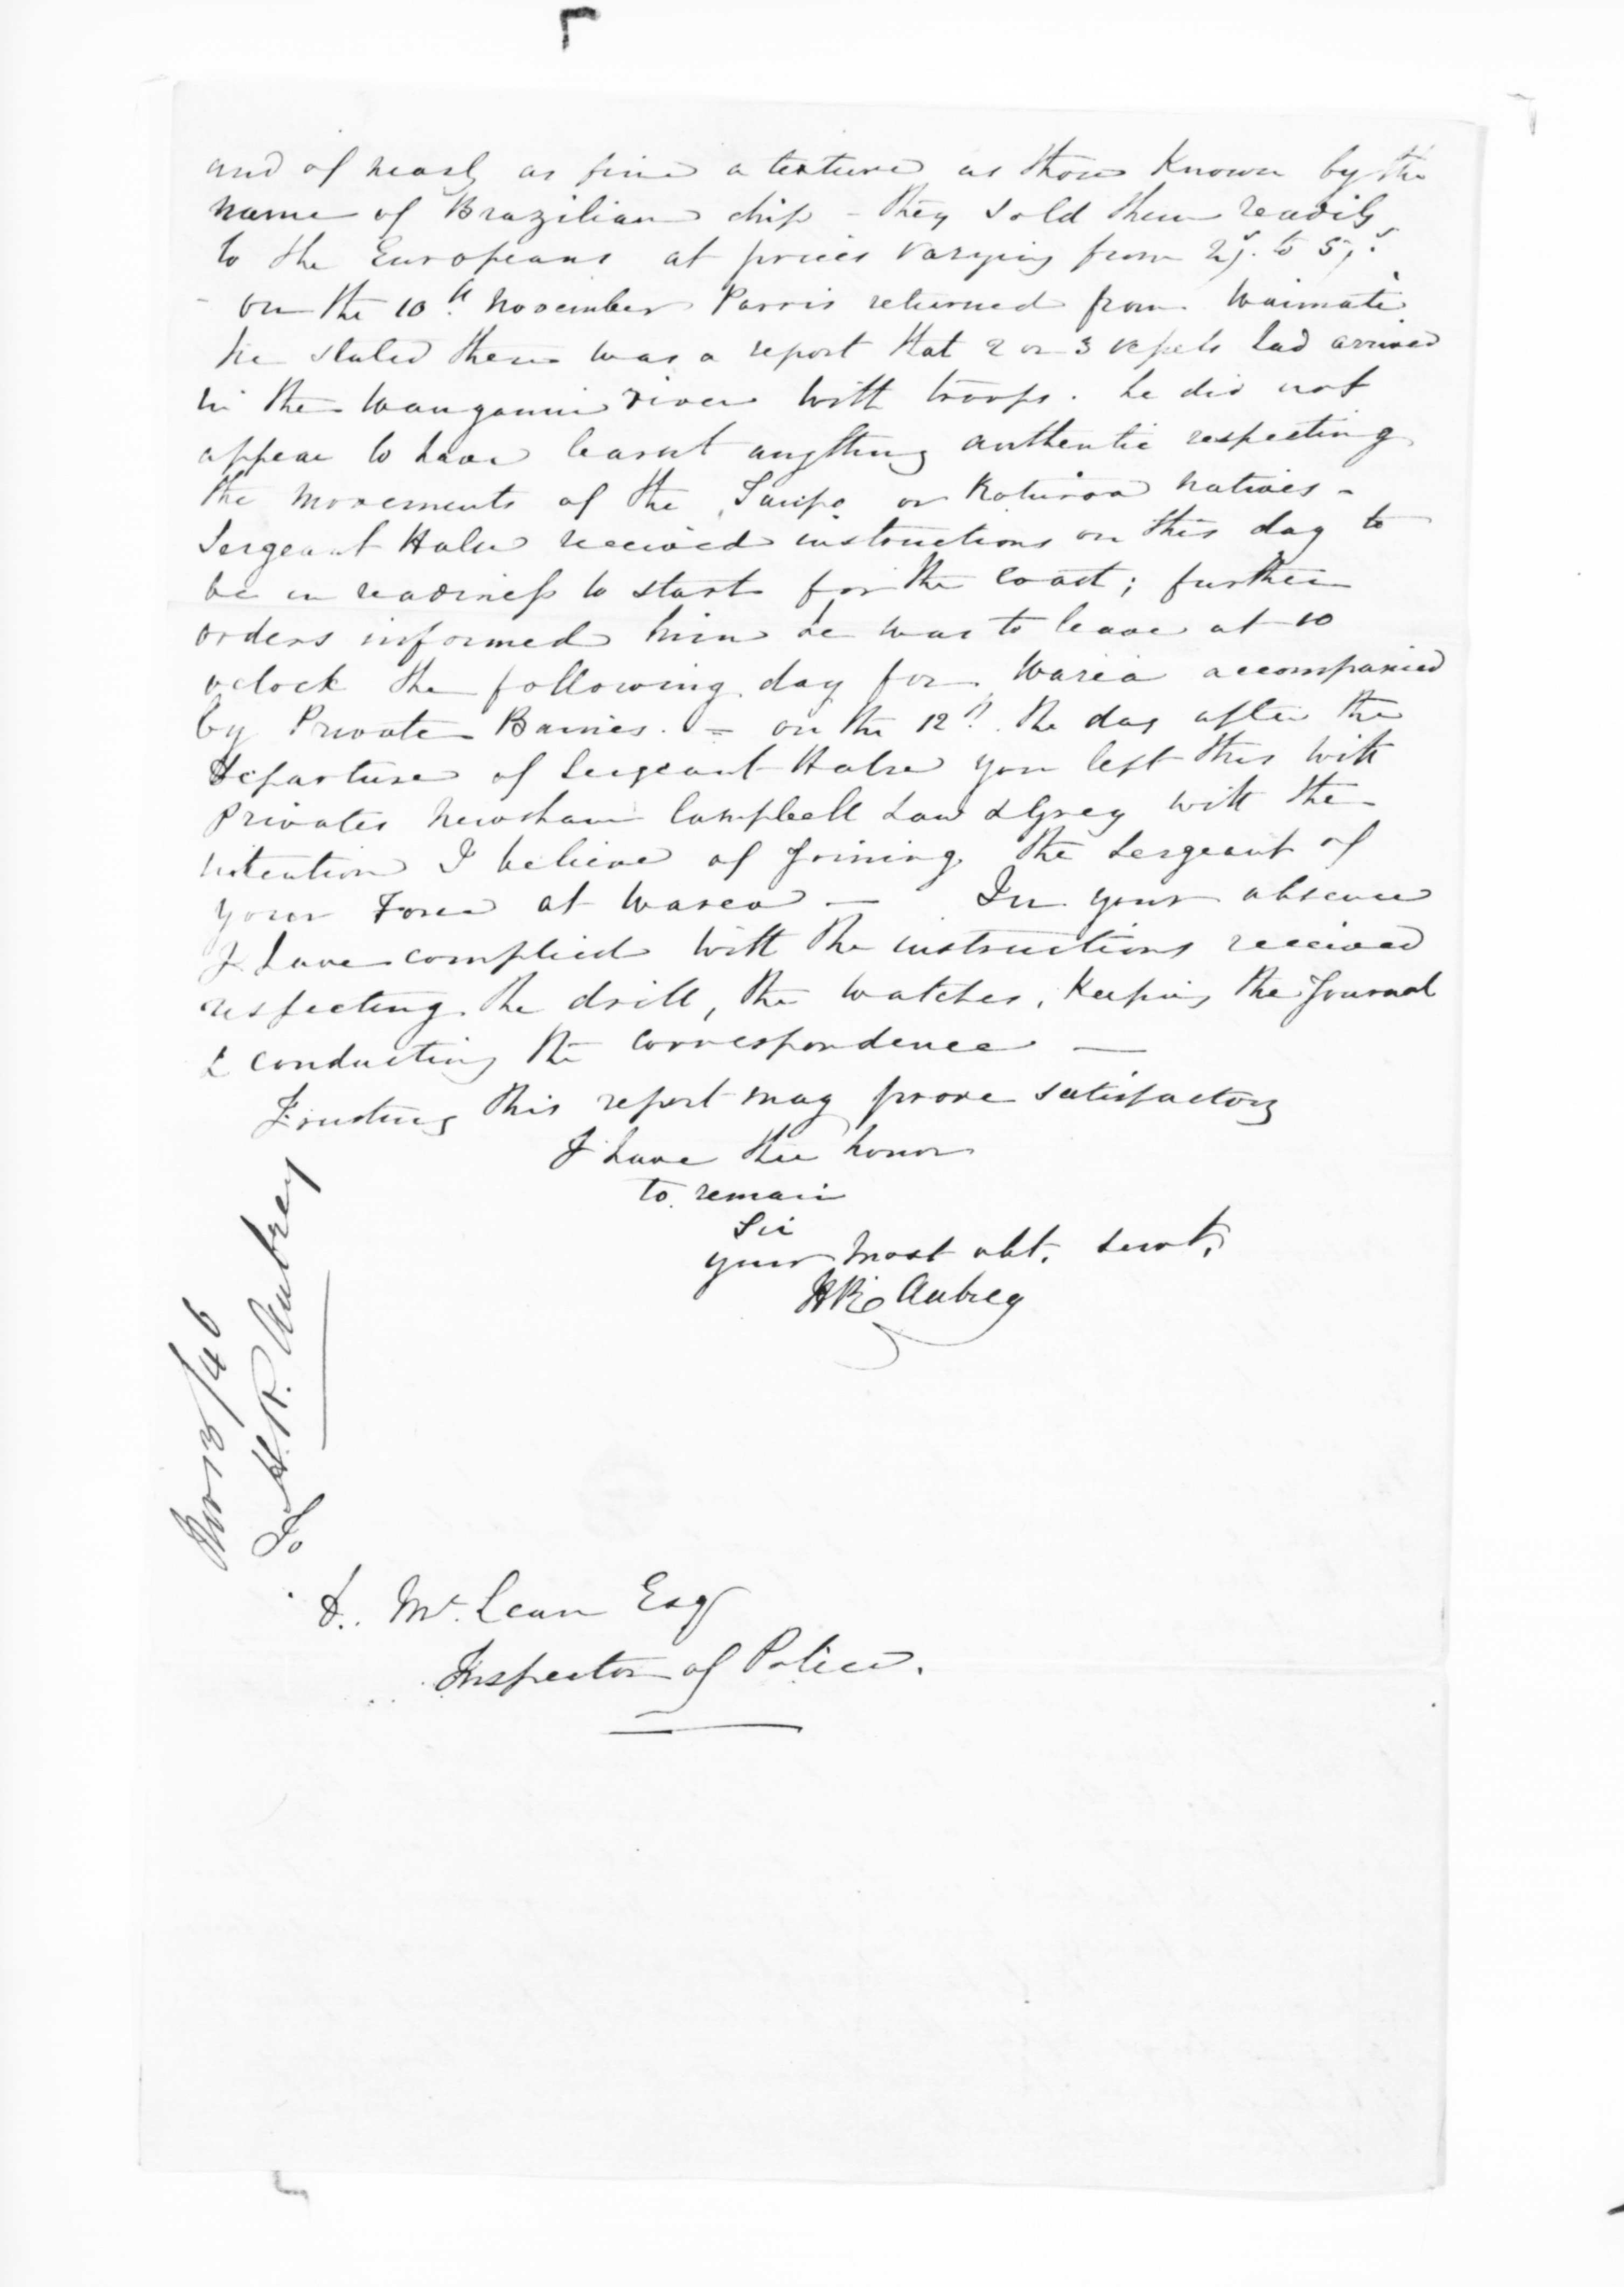 and of nearly as fine a texture as those Known by the
name of Brazilian chip - they sold them readily
to the Europeans at prices varying from 2/. to 5/.
- on the 10th November Parris returned from Waimate
he stated there was a report that 2 or 3 vessels had arrived
in the Wanganui river with troops. he did not
appear to have learnt anything authentic respecting
the movements of the Taupo or Roturoa natives -
Sergeant Halse received instructions on this day to
be in readiness to start for the Coast; further
orders informed him he was to leave at 10
oclock the following day for Warea accompanied
by Private Barnes. = on the 12th. the day after the
departure of Sergeant Halse you left this with
Privates Newsham Campbell Law & Grey with the
intention I believe of joining the Sergeant of
your Force at Warea — In your absence
I have complied with the instructions received
respecting the drill, the watches, Keeping the Journal
& conducting the correspondence —
Trusting this report may prove satisfactory
I have the honor
to remain
Sir
your most obt. servt,
HR Aubrey
Nov 13/46
H.R. Aubrey
To
D. McLean Esq
Inspector of Police.